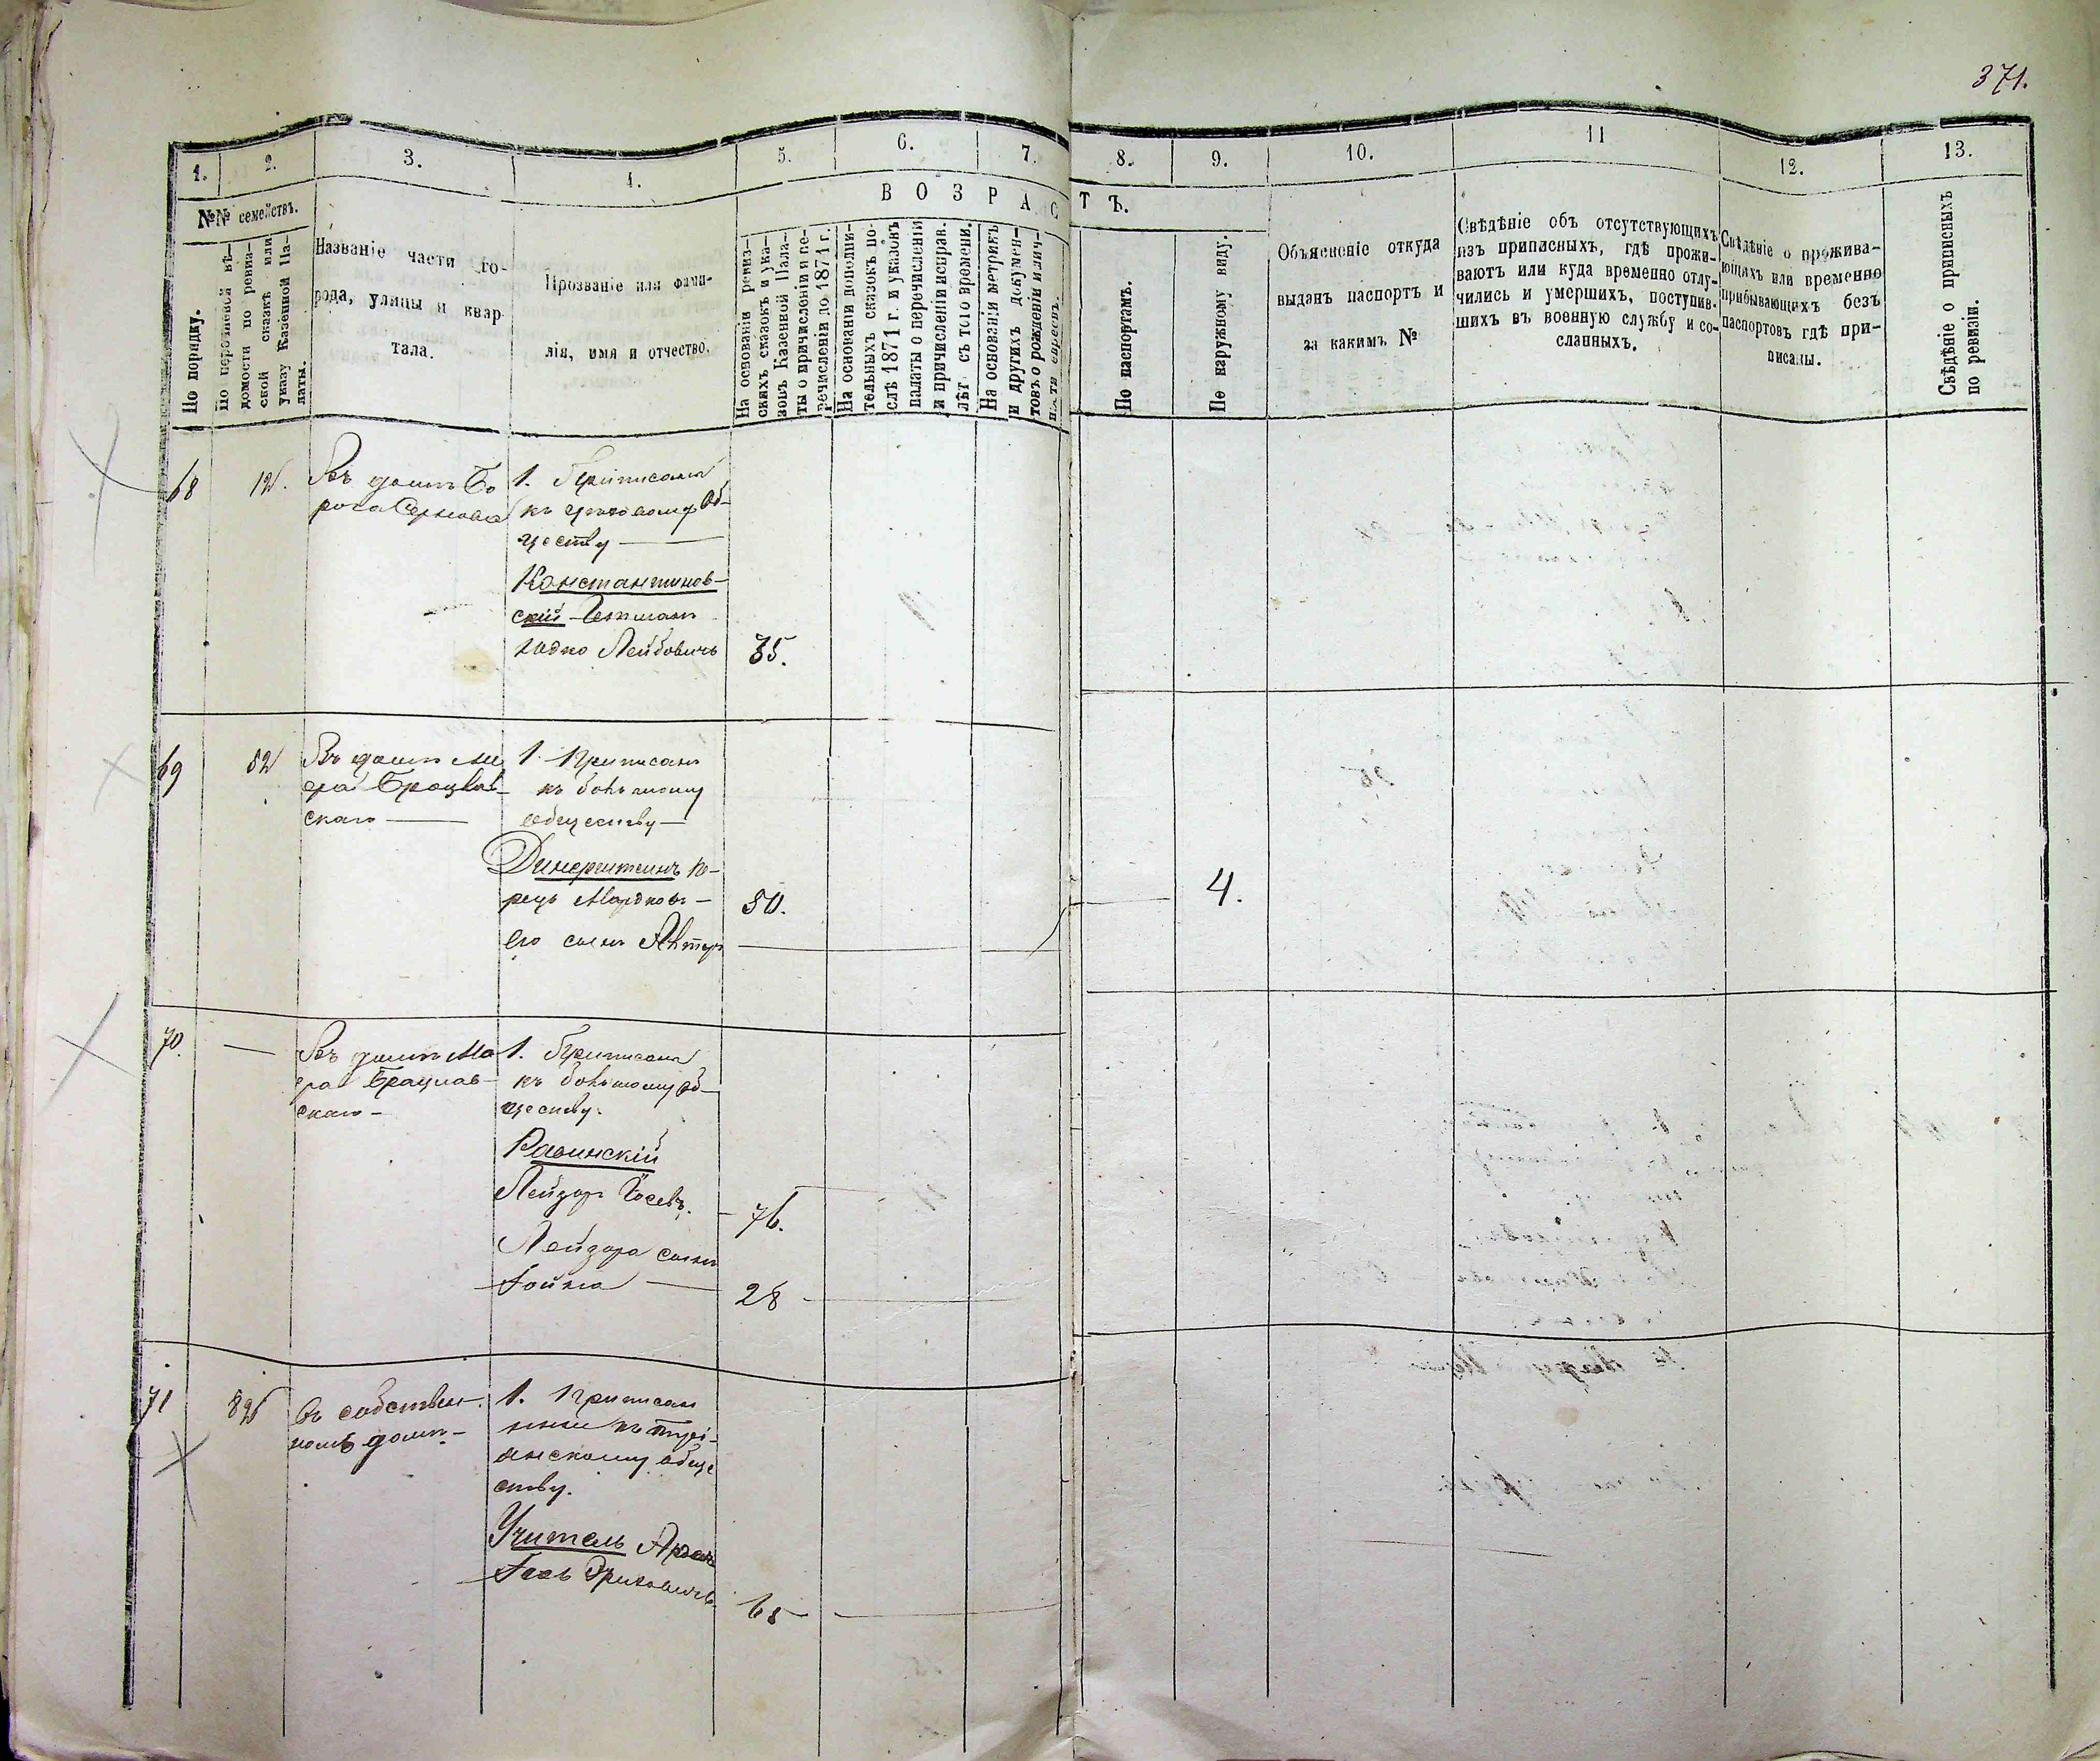 371.
1.
2.
3.
4.
5.
6.
7.
8.
9.
10.
11
12.
13.
№№ семействъ.
По порядку.
По перечневой вѣ-
домости по ревиз-
ской сказкѣ или
указу Казенной Па-
латы.
Названіе части го-
рода, улицы и квар-
тала.
Прозваніе или фами-
лія, имя и отчество.
ВОЗРАСТЪ.
На основаніи ревиз-
скихъ сказокъ и ука-
зовъ Казенной Пала-
ты о причисленіи и пе-
речисленіи до 1871 г.
На основаніи дополни-
тельныхъ сказокъ по-
слѣ 1871 г. и указовъ
палаты о перечисленіи
и причисленіи исправ.
лѣт съ того времени.
На основаніи метрикъ
и другихъ докумен-
товъ о рожденіи и лич-
ности евреевъ.
По паспортамъ.
По наружному виду.
Объясненіе откуда
выданъ паспортъ и
за какимъ №
Свѣдѣніе объ отсутствующихъ
изъ приписныхъ, гдѣ прожи-
ваютъ или куда временно отлу-
чились и умершихъ, поступив-
шихъ въ военную службу и со-
сланныхъ.
Свѣдѣніе о прожива-
ющихъ или временно
прибывающихъ безъ
паспортовъ гдѣ при-
писаны.
Свѣдѣніе о приписныхъ
по ревизіи.
68
Въ домѣ Бо
роха
1. Приписанъ
къ цеховому Об-
ществу
Константинов-
скій
Лейбовичъ
35.
69
52
Въ домѣ Ме
ера Брацлав-
скаго
1. Приписанъ
къ большому
обществу
Динерштейнъ Пе-
рецъ Мордков-
50.
Его сынъ
4.
70.
Въ домѣ Ме
ера Брацлав-
скаго
1. Приписанъ
къ большому об-
ществу.
Равинскій
Лейзоръ Іосевъ.
76.
Лейзора сынъ
Гойна
28
71
Въ собствен-
номъ домѣ
1. Приписан
обще
ству.
Учитель